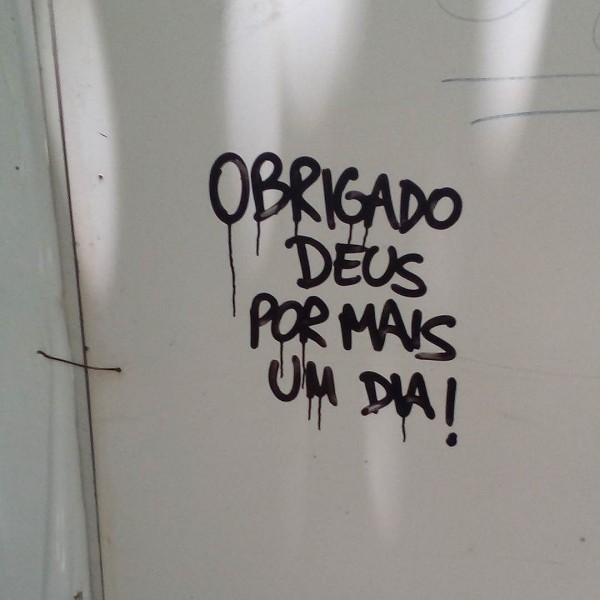 OBRIGADO
DEUS
POR MAIS
UM DIA!